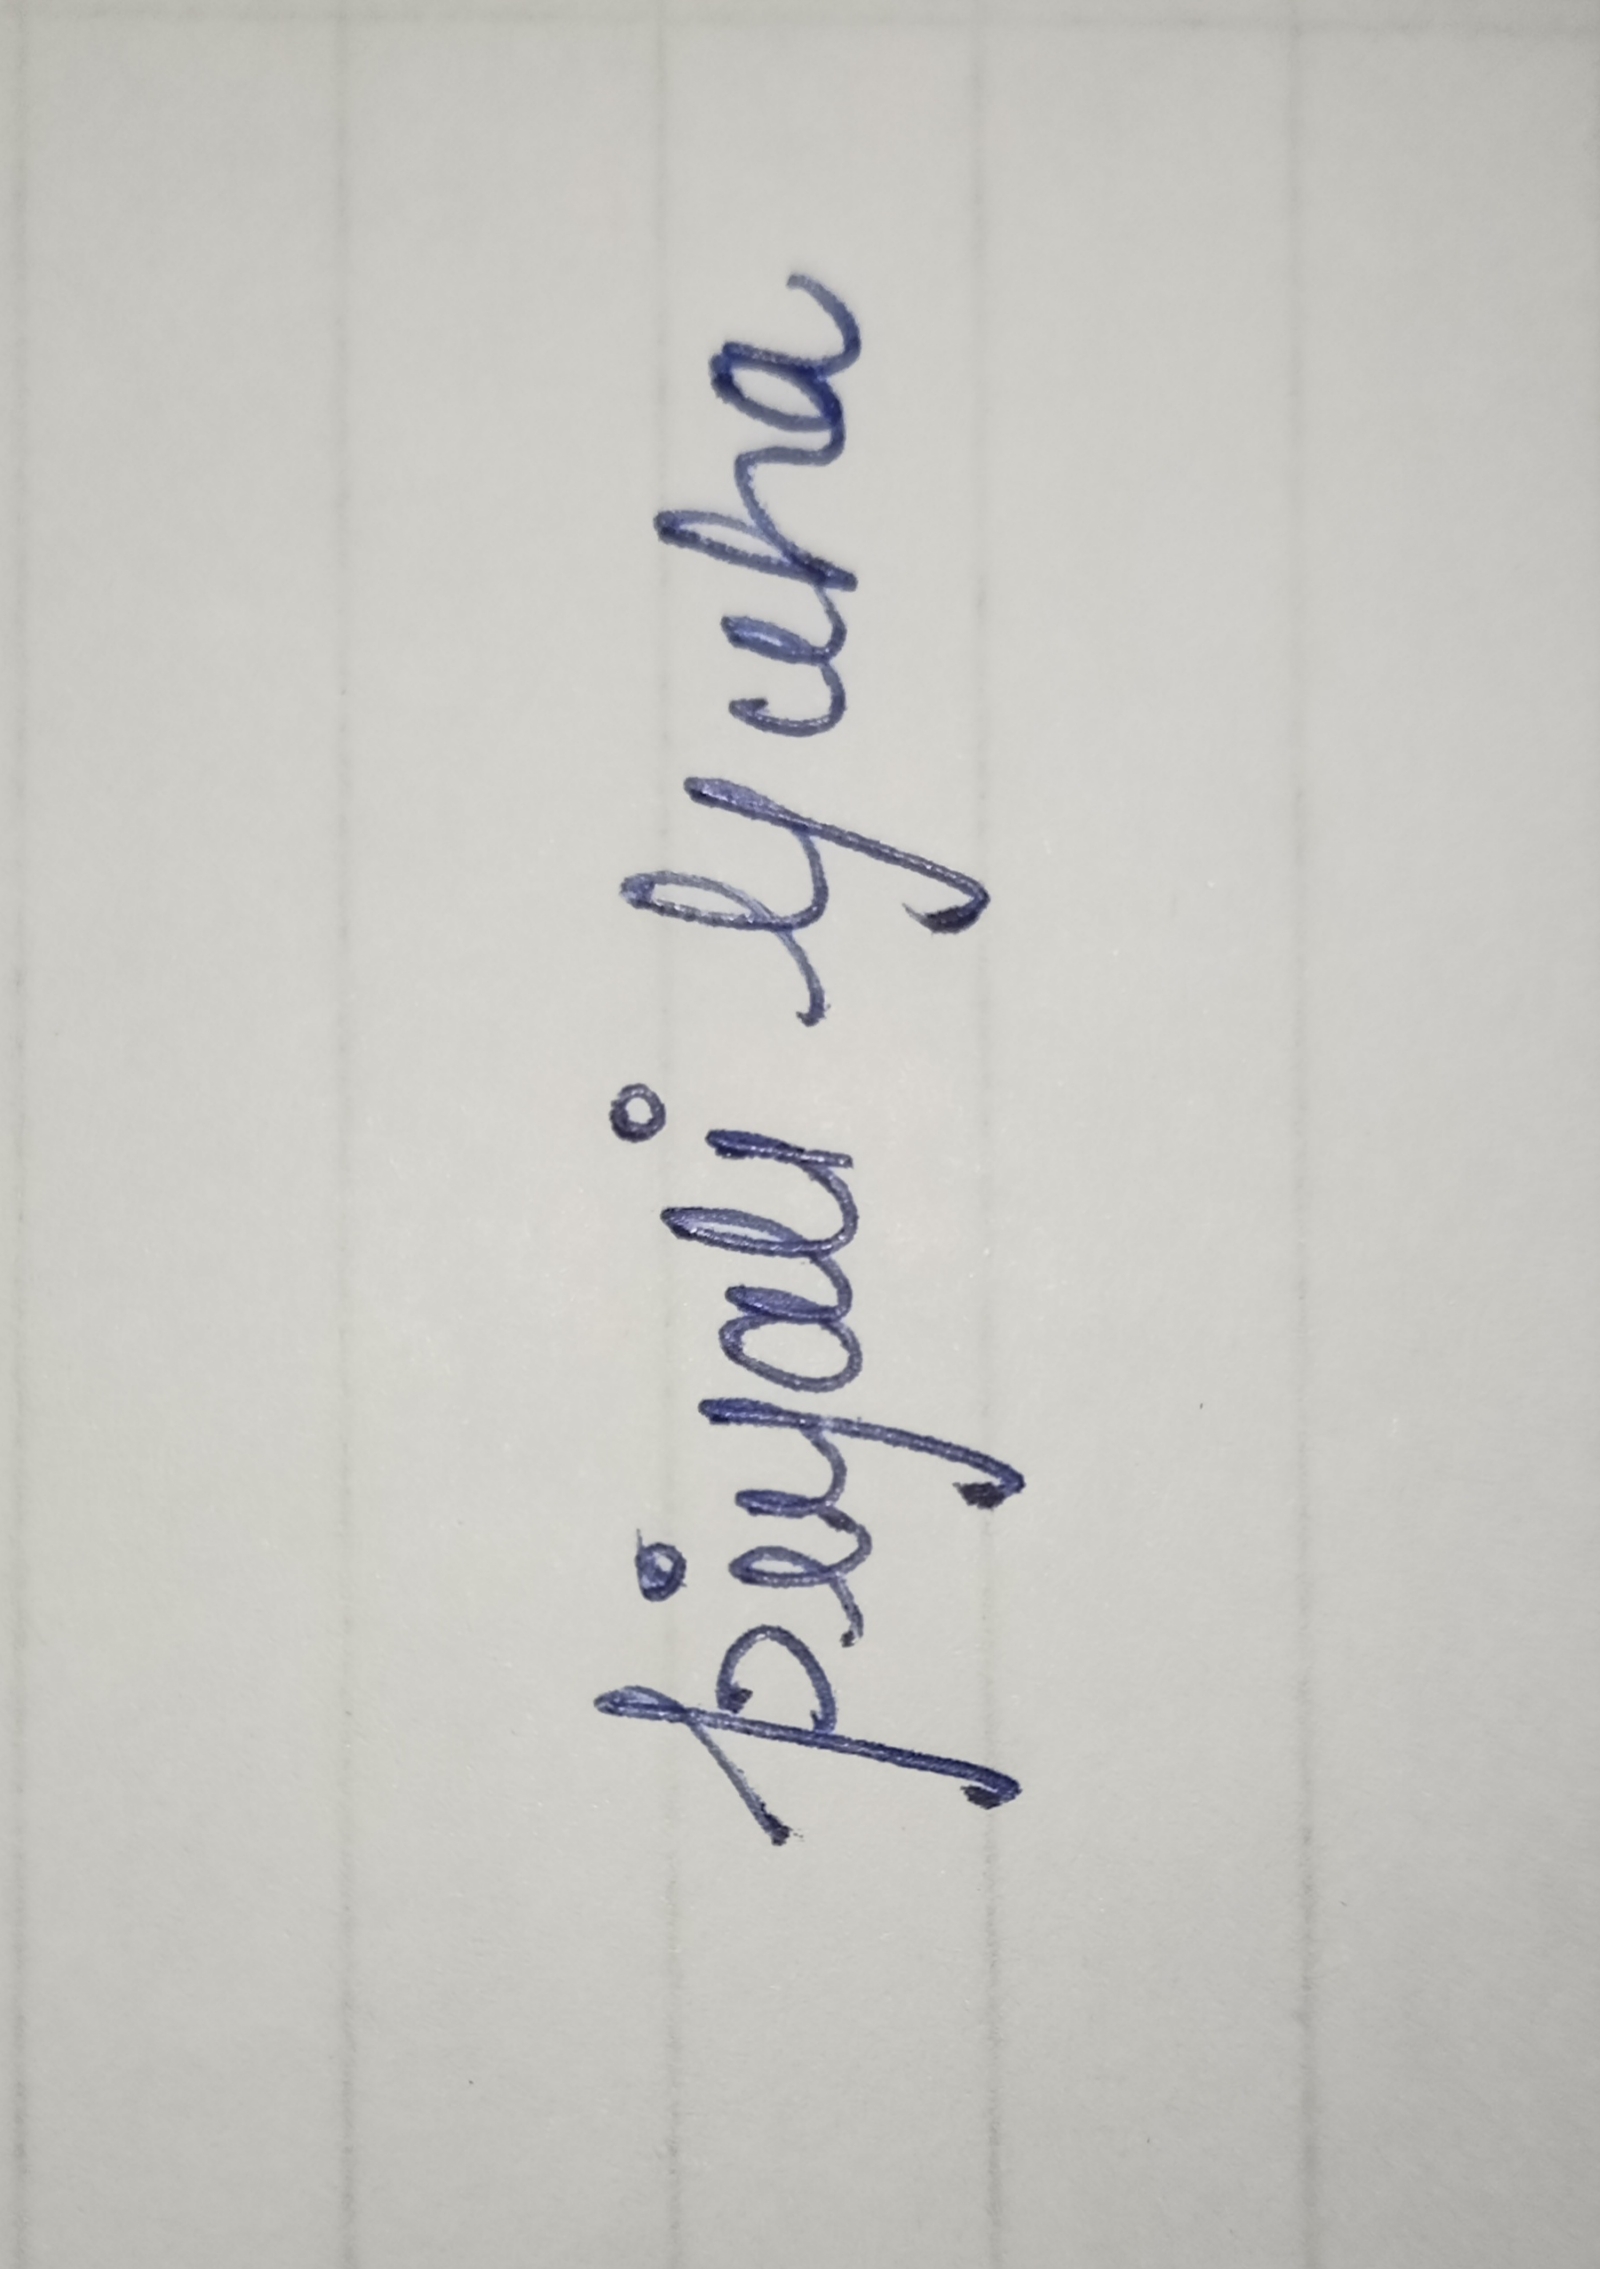 piyali Guha